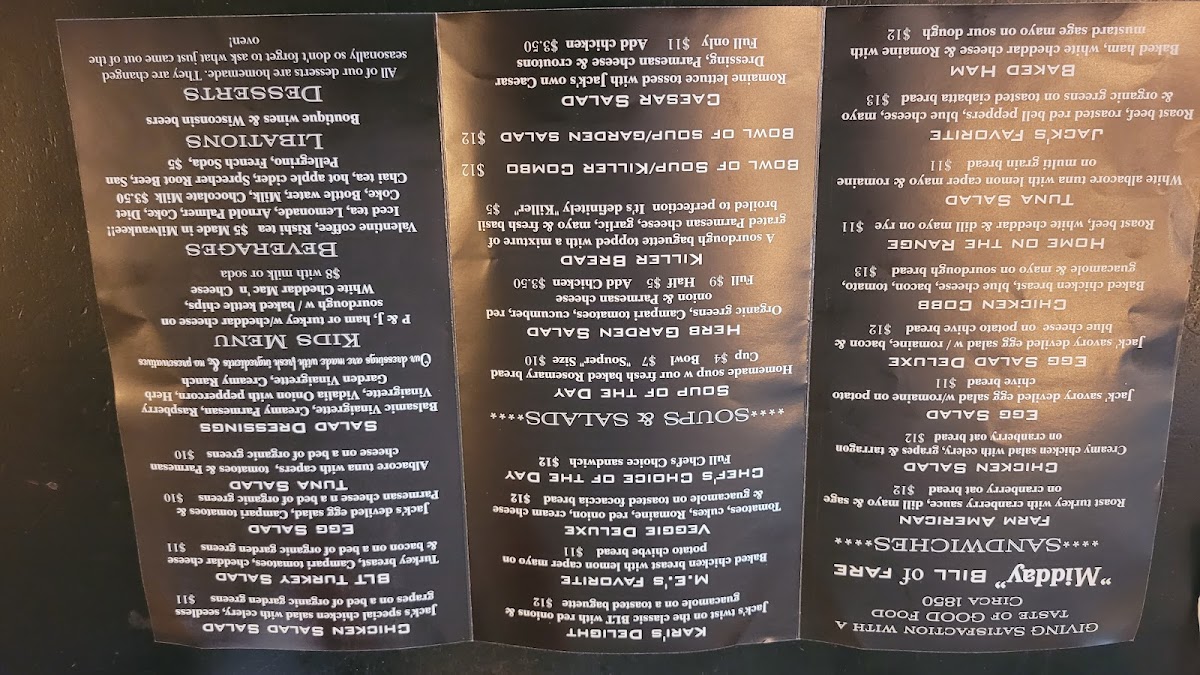 GIVING SATISFACTION WITH A
TASTE OF GOOD FOOD
CIRCA 1850
"Midday" BILL of FARE
****SANDWICHES****
FARM AMERICAN
Roast turkey with cranberry sauce, dill mayo & sage
on cranberry oat bread $12
CHICKEN SALAD
Creamy chicken salad with celery, grapes & tarragon
on cranberry oat bread $12
EGG SALAD
Jack' savory deviled egg salad w/romaine on potato
chive bread $11
EGG SALAD DELUXE
Jack' savory deviled egg salad w / romaine, bacon &
blue cheese on potato chive bread $12
CHICKEN COBB
Baked chicken breast, blue cheese, bacon, tomato,
guacamole & mayo on sourdough bread $13
HOME ON THE RANGE
Roast beef, white cheddar & dill mayo on rye $11
TUNA SALAD
White albacore tuna with lemon caper mayo & romaine
on multi grain bread $11
JACK'S FAVORITE
Roast beef, roasted red bell peppers, blue cheese, mayo
& organic greens on toasted ciabatta bread $13
BAKED HAM
Baked ham, white cheddar cheese & Romaine with
mustard sage mayo on sour dough $12
KARI'S DELIGHT
Jack's on twist on the classic BLT with red onions &
guacamole on a toasted baguette $12
M.E.'S FAVORITE
Baked chicken breast with lemon caper mayo on
potato chivbe bread $11
VEGGIE DELUXE
Tomatoes, cukes, Romaine, red onion, cream cheese
& guacamole on toasted focaccia bread $12
CHEF'S CHOICE OF THE DAY
Full Chef's Choice sandwich $12
****SOUPS & SALADS****
SOUP OF THE DAY
Homemade soup w our fresh baked Rosemary bread
Cup $4 Bowl $7 "Souper" Size $10
HERB GARDEN SALAD
Organic greens, Campari tomatoes, cucumber, red
onion & Parmesan cheese
Full $9 Half $5 Add Chicken $3.50
KILLER BREAD
A sourdough baguette topped with a mixture of
grated Parmesan cheese, garlic, mayo & fresh basil
broiled to perfection It's definitely "Killer" $5
BOWL OF SOUP/KILLER COMBO $12
BOWL OF SOUP/GARDEN SALAD $12
CAESAR SALAD
Romaine lettuce tossed with Jack's own Caesar
Dressing, Parmesan cheese & croutons
Full only $11 Add chicken $3.50
CHICKEN SALAD SALAD
Jack's special chicken salad with celery, seedless
grapes on a bed of organic garden greens $11
BLT TURKEY SALAD
Turkey breast, Campari tomatoes, cheddar cheese
& bacon on a bed of organic garden greens $11
EGG SALAD
Jack's deviled egg salad, Campari tomatoes &
Parmesan cheese n a bed of organic greens $10
TUNA SALAD
Albacore tuna with capers, tomatoes & Parmesan
cheese on a bed of organic greens $10
SALAD DRESSINGS
Balsamic Vinaigrette, Creamy Parmesan, Raspberry
Vinaigrette, Vidalia Onion with peppercorn, Herb
Garden Vinaigrette, Creamy Ranch
Our dressings are made with fresh ingredients & no preservatives
KIDS MENU
P & J, ham or turkey w/cheddar cheese on
sourdough w / baked kettle chips,
White Cheddar Mac 'n Cheese
$8 with milk or soda
BEVERAGES
Valentine coffee, Rishi tea $5 Made in Milwaukee!!
Iced tea, Lemonade, Arnold Palmer, Coke, Diet
Coke, Bottle water, Milk, Chocolate Milk $3.50
Chai tea, hot apple cider, Sprecher Root Beer, San
Pellegrino, French Soda, $5
LIBATIONS
Boutique wines & Wisconsin beers
DESSERTS
All of our desserts are homemade. They are changed
seasonally so don't forget to ask what just came out of the
oven!